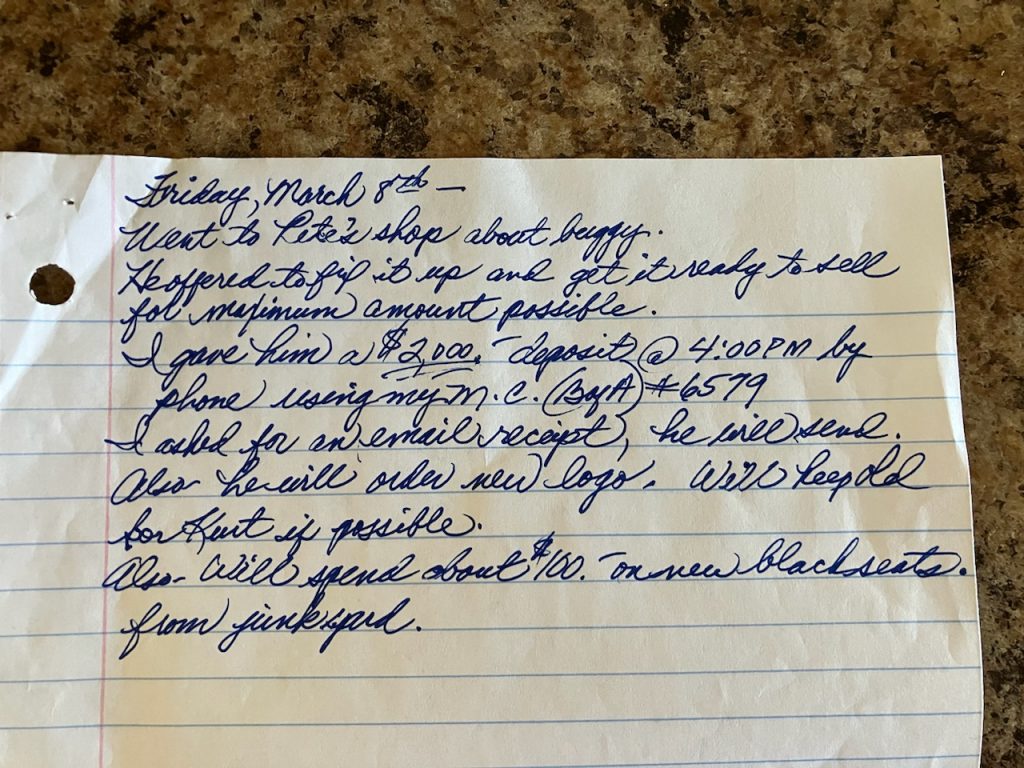 Friday, March 8th –
Went to Pete's shop about buggy.
He offered to fix it up and get it ready to sell
for maximum amount possible.
I gave him a $2,000.– deposit @ 4:00 PM by
phone using my M.C. (BofA) #6579
I asked for an email receipt, he will send.
Also- he will order new logo. Will keep old
for Kurt if possible.
Also- Will spend about $100.– on new black seats.
from junkyard.